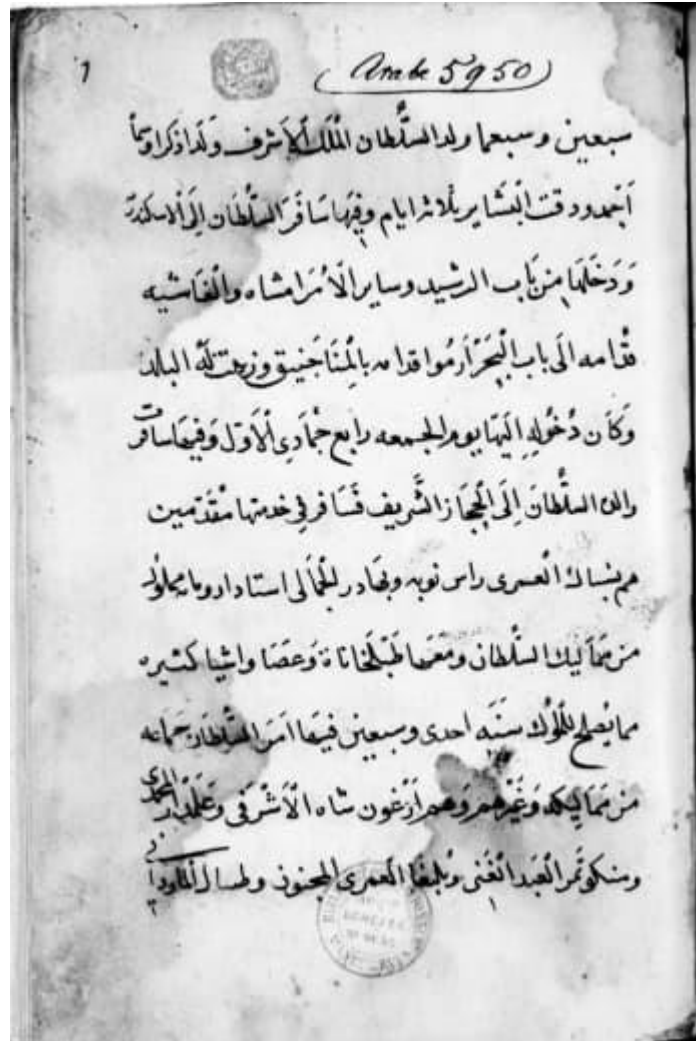 (Arabe 5950)
سبعين وسبعما ولد السُّلطان الْمَلَك الاَشرف وَلَدا ذكرا وسمّاْ
اَحمد ودقت الْبَشَاير ثلاثه ايام وَفِيهَا سَافَرَ السُّلْطَان اِلَى الاسكندر
وَدَخَلَهَا مِنْ بَاب الرشيد وساير الْاُمَرَا مشاه والْغَاشيه
قدَّامه الَى باب الْبَحَرْ اَرمُوا قدامه بالْمَنَاجَنِيق وزينت لَهُ البلد
وَكَاَن دُخُولِهِ الَيْهَا يوم الجمعه رابع جُمَادِى الْاَوّل وَفيهَا سافرت
والدة السُّلْطَان اِلَى الْحِجَاز الشَّريف فَسَافر فِي خدمتها مُقَدّمين
هم بشتاك الْعمرى راس نوبه وبهادر الجَمَالى استادار ومايه مملوك
من مَمَاليك السُّلْطان ومَعَها طَبْلَخاناة وَعصَا واشيا كثيره
مما يُصلح للْمُلُوك سَنَه احدى وسبعين فيهَا امَرَ السُّلطَان جَمَاعه
من مَمَاليكه وَغَيْرهِم وَهم اَرْغون شاه الْاَشْرَفى وَ المحمدى
ومنكوتَمر الْعَبد الْغَنى وَيلبغَا الْعمرى المجنون و